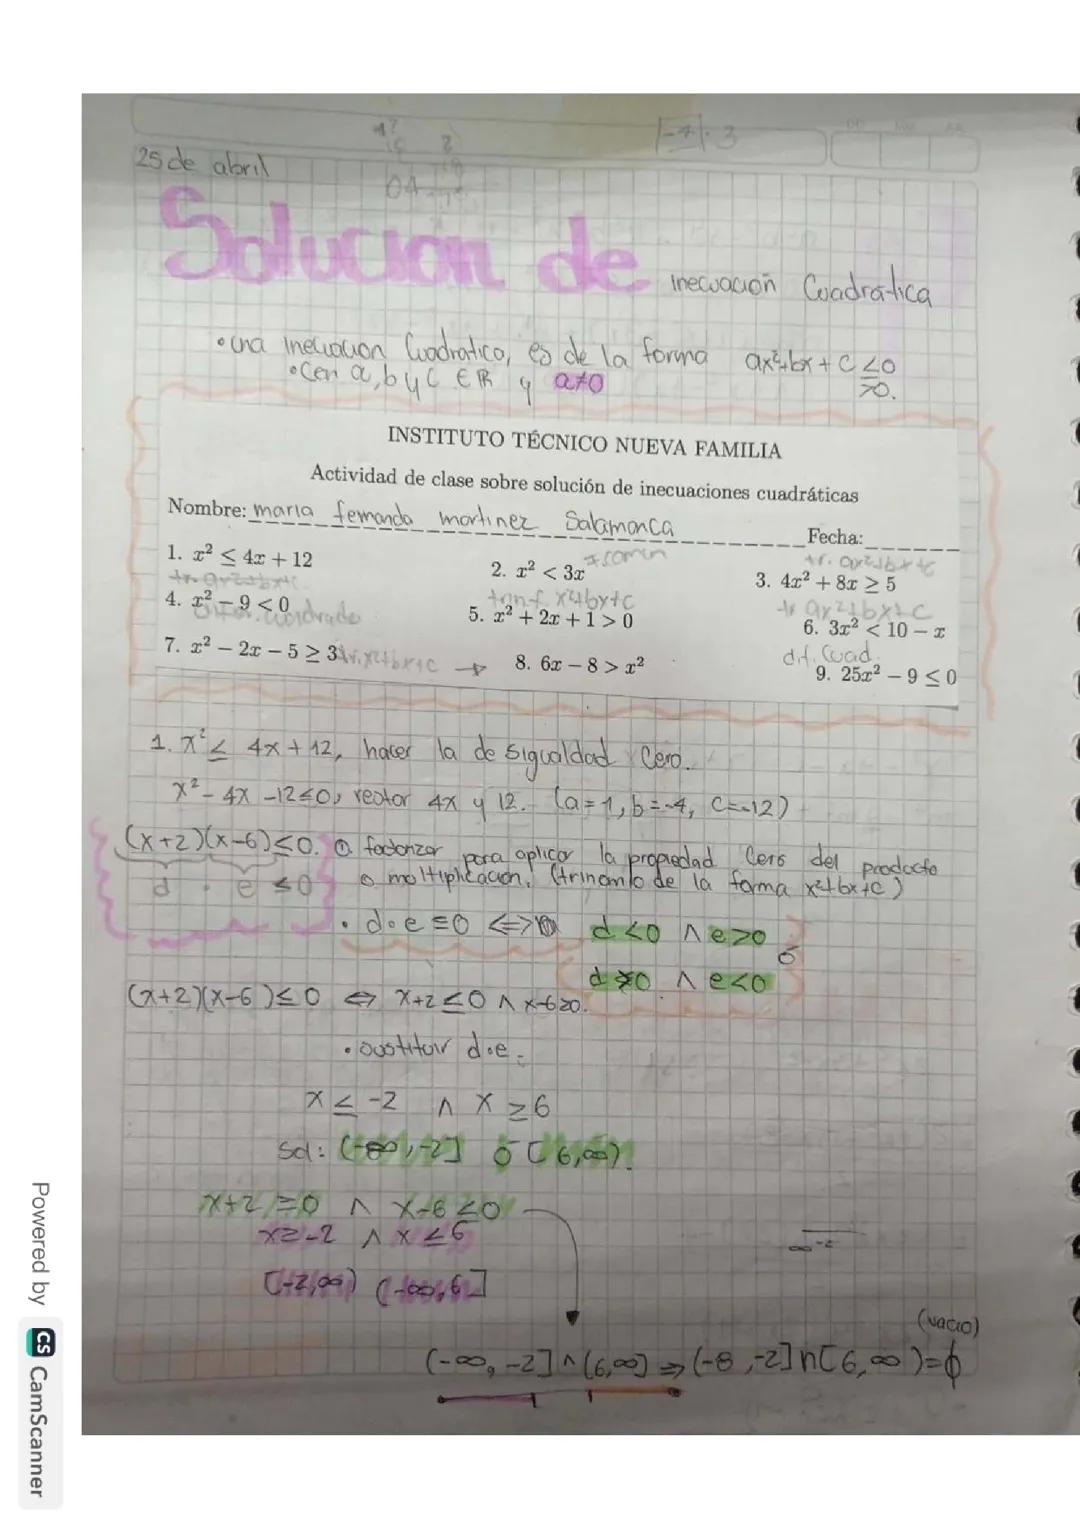 25 de abril
|-7| · 3
Solucion de inecuacion Cuadratica
• una inecuacion Cuadratica, es de la forma ax²+bx + C ≤ 0
≥0.
• Con a, b y C ∈ ℝ y a≠0
INSTITUTO TÉCNICO NUEVA FAMILIA
Actividad de clase sobre solución de inecuaciones cuadráticas
Nombre: maria fernanda martinez Salamanca Fecha:
1. x² ≤ 4x + 12 2. x² < 3x 3. 4x² + 8x ≥ 5
4. x² − 9 < 0 5. x² + 2x + 1 > 0 6. 3x² < 10 − x
7. x² − 2x − 5 ≥ 3 8. 6x − 8 > x² 9. 25x² − 9 ≤ 0
1. x² ≤ 4x + 12, hacer la desigualdad Cero.
x² - 4x - 12≤0, restar 4x y 12. (a=1, b=-4, C=-12)
(x+2)(x-6)≤0. factorizar para aplicar la propiedad Cero del producto
d · e ≤0 o moltiplicacion. (trinomio de la forma x²+bx+c)
• d·e ≤0 <=> d <0 ∧ e>0 ó
d >0 ∧ e<0
(x+2)(x-6)≤0 <=> x+2≤0 ∧ x-6≥0.
• sustituir d·e.
x ≤ -2 ∧ x ≥ 6
Sol: (-∞, -2] ó [6,∞).
x+2 ≥0 ∧ x-6 ≤0
x≥-2 ∧ x ≤ 6
[-2,∞) (-∞,6]
∞ -2
(vacio)
(-∞, -2] ^ (6,∞] => (-8, -2] ∩ [6, ∞)=ϕ
Powered by CS CamScanner